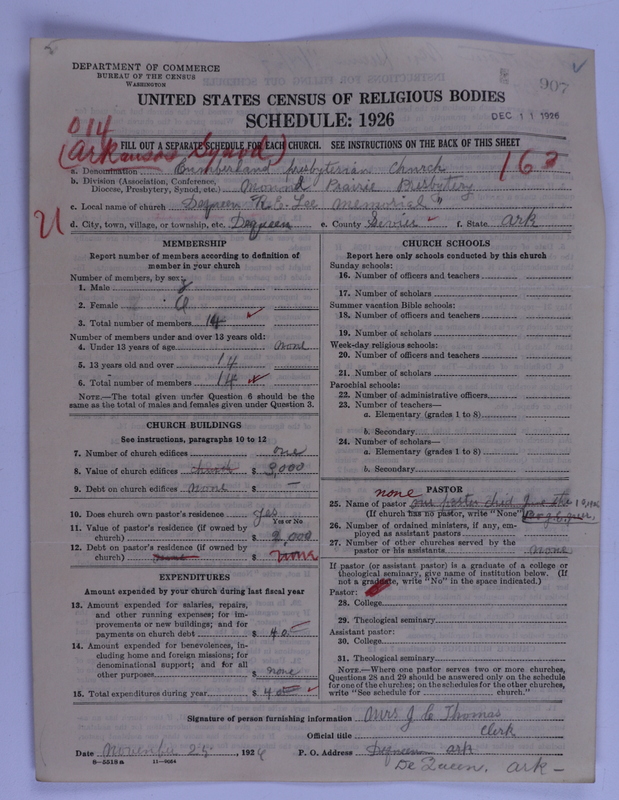 DEPARTMENT OF COMMERCE
BUREAU OF THE CENSUS
WASHINGTON
907
UNITED STATES CENSUS OF RELIGIOUS BODIES
DEC 11 1926
SCHEDULE: 1926
014
FILL OUT A SEPARATE SCHEDULE FOR EACH CHURCH. SEE INSTRUCTIONS ON THE BACK OF THIS SHEET
(Arkansas Synod)
163
a. Denomination Cumberland Presbyterian Church
b. Division (Association, Conference, Diocese, Presbytery, Synod, etc.) Prairie Presbytery
c. Local name of church Dequeen "R.E. Lee Memorial"
d. City, town, village, or township, etc. Dequeen e. County Sevier f. State Ark
MEMBERSHIP
Report number of members according to definition of member in your church
Number of members, by sex:
1. Male
2. Female
3. Total number of members 14
Number of members under and over 13 years old:
4. Under 13 years of age none
5. 13 years old and over 14
6. Total number of members 14
NOTE.—The total given under Question 6 should be the same as the total of males and females given under Question 3.
CHURCH BUILDINGS
See instructions, paragraphs 10 to 12
7. Number of church edifices one
8. Value of church edifices church $ 3,000
9. Debt on church edifices none $ —
10. Does church own pastor's residence yes
Yes or No
11. Value of pastor's residence (if owned by church) $ 2,000
12. Debt on pastor's residence (if owned by church) $ none
EXPENDITURES
Amount expended by your church during last fiscal year
13. Amount expended for salaries, repairs, and other running expenses; for improvements or new buildings; and for payments on church debt $ 40
14. Amount expended for benevolences, including home and foreign missions; for denominational support; and for all other purposes $ none
15. Total expenditures during year $ 40
CHURCH SCHOOLS
Report here only schools conducted by this church
Sunday schools:
16. Number of officers and teachers
17. Number of scholars
Summer vacation Bible schools:
18. Number of officers and teachers
19. Number of scholars
Week-day religious schools:
20. Number of officers and teachers
21. Number of scholars
Parochial schools:
22. Number of administrative officers
23. Number of teachers—
a. Elementary (grades 1 to 8)
b. Secondary
24. Number of scholars—
a. Elementary (grades 1 to 8)
b. Secondary
none PASTOR
25. Name of pastor our pastor died June
(If church has no pastor, write "None")
26. Number of ordained ministers, if any, employed as assistant pastors
27. Number of other churches served by the pastor or his assistants none
If pastor (or assistant pastor) is a graduate of a college or theological seminary, give name of institution below. (If not a graduate, write "No" in the space indicated.)
Pastor:
28. College
29. Theological seminary
Assistant pastor:
30. College
31. Theological seminary
NOTE.—Where one pastor serves two or more churches, Questions 28 and 29 should be answered only on the schedule for one of the churches; on the schedules for the other churches, write "See schedule for church."
Signature of person furnishing information Mrs J C Thomas
Official title Clerk
Date November 25, 1926 P. O. Address Dequeen Ark
8—5518a 11—9064
De Queen, Ark—